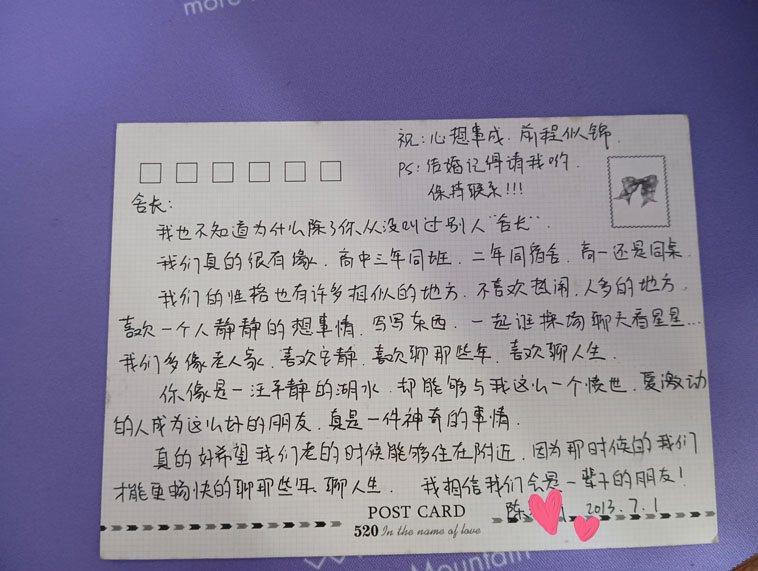 more
祝:心想事成.前程似锦.
PS:结婚记得请我哟.
保持联系!!!
舍长:
我也不知道为什么除了你从没叫过别人"舍长".
我们真的很有缘.高中三年同班.二年同宿舍.高一还是同桌.
我们的性格也有许多相似的地方.不喜欢热闹.人多的地方.
喜欢一个人静静的想事情.写写东西.一起逛操场聊天看星星...
我们多像老人家.喜欢安静.喜欢聊那些年.喜欢聊人生.
你像是一汪平静的湖水.却能够与我这么一个愤世.爱激动
的人成为这么好的朋友.真是一件神奇的事情.
真的好希望我们老的时候能够住在附近.因为那时候的我们
才能更畅快的聊那些年.聊人生. 我相信我们会是一辈子的朋友!
陈 2013.7.1
POST CARD
520 In the name of love
Mountain